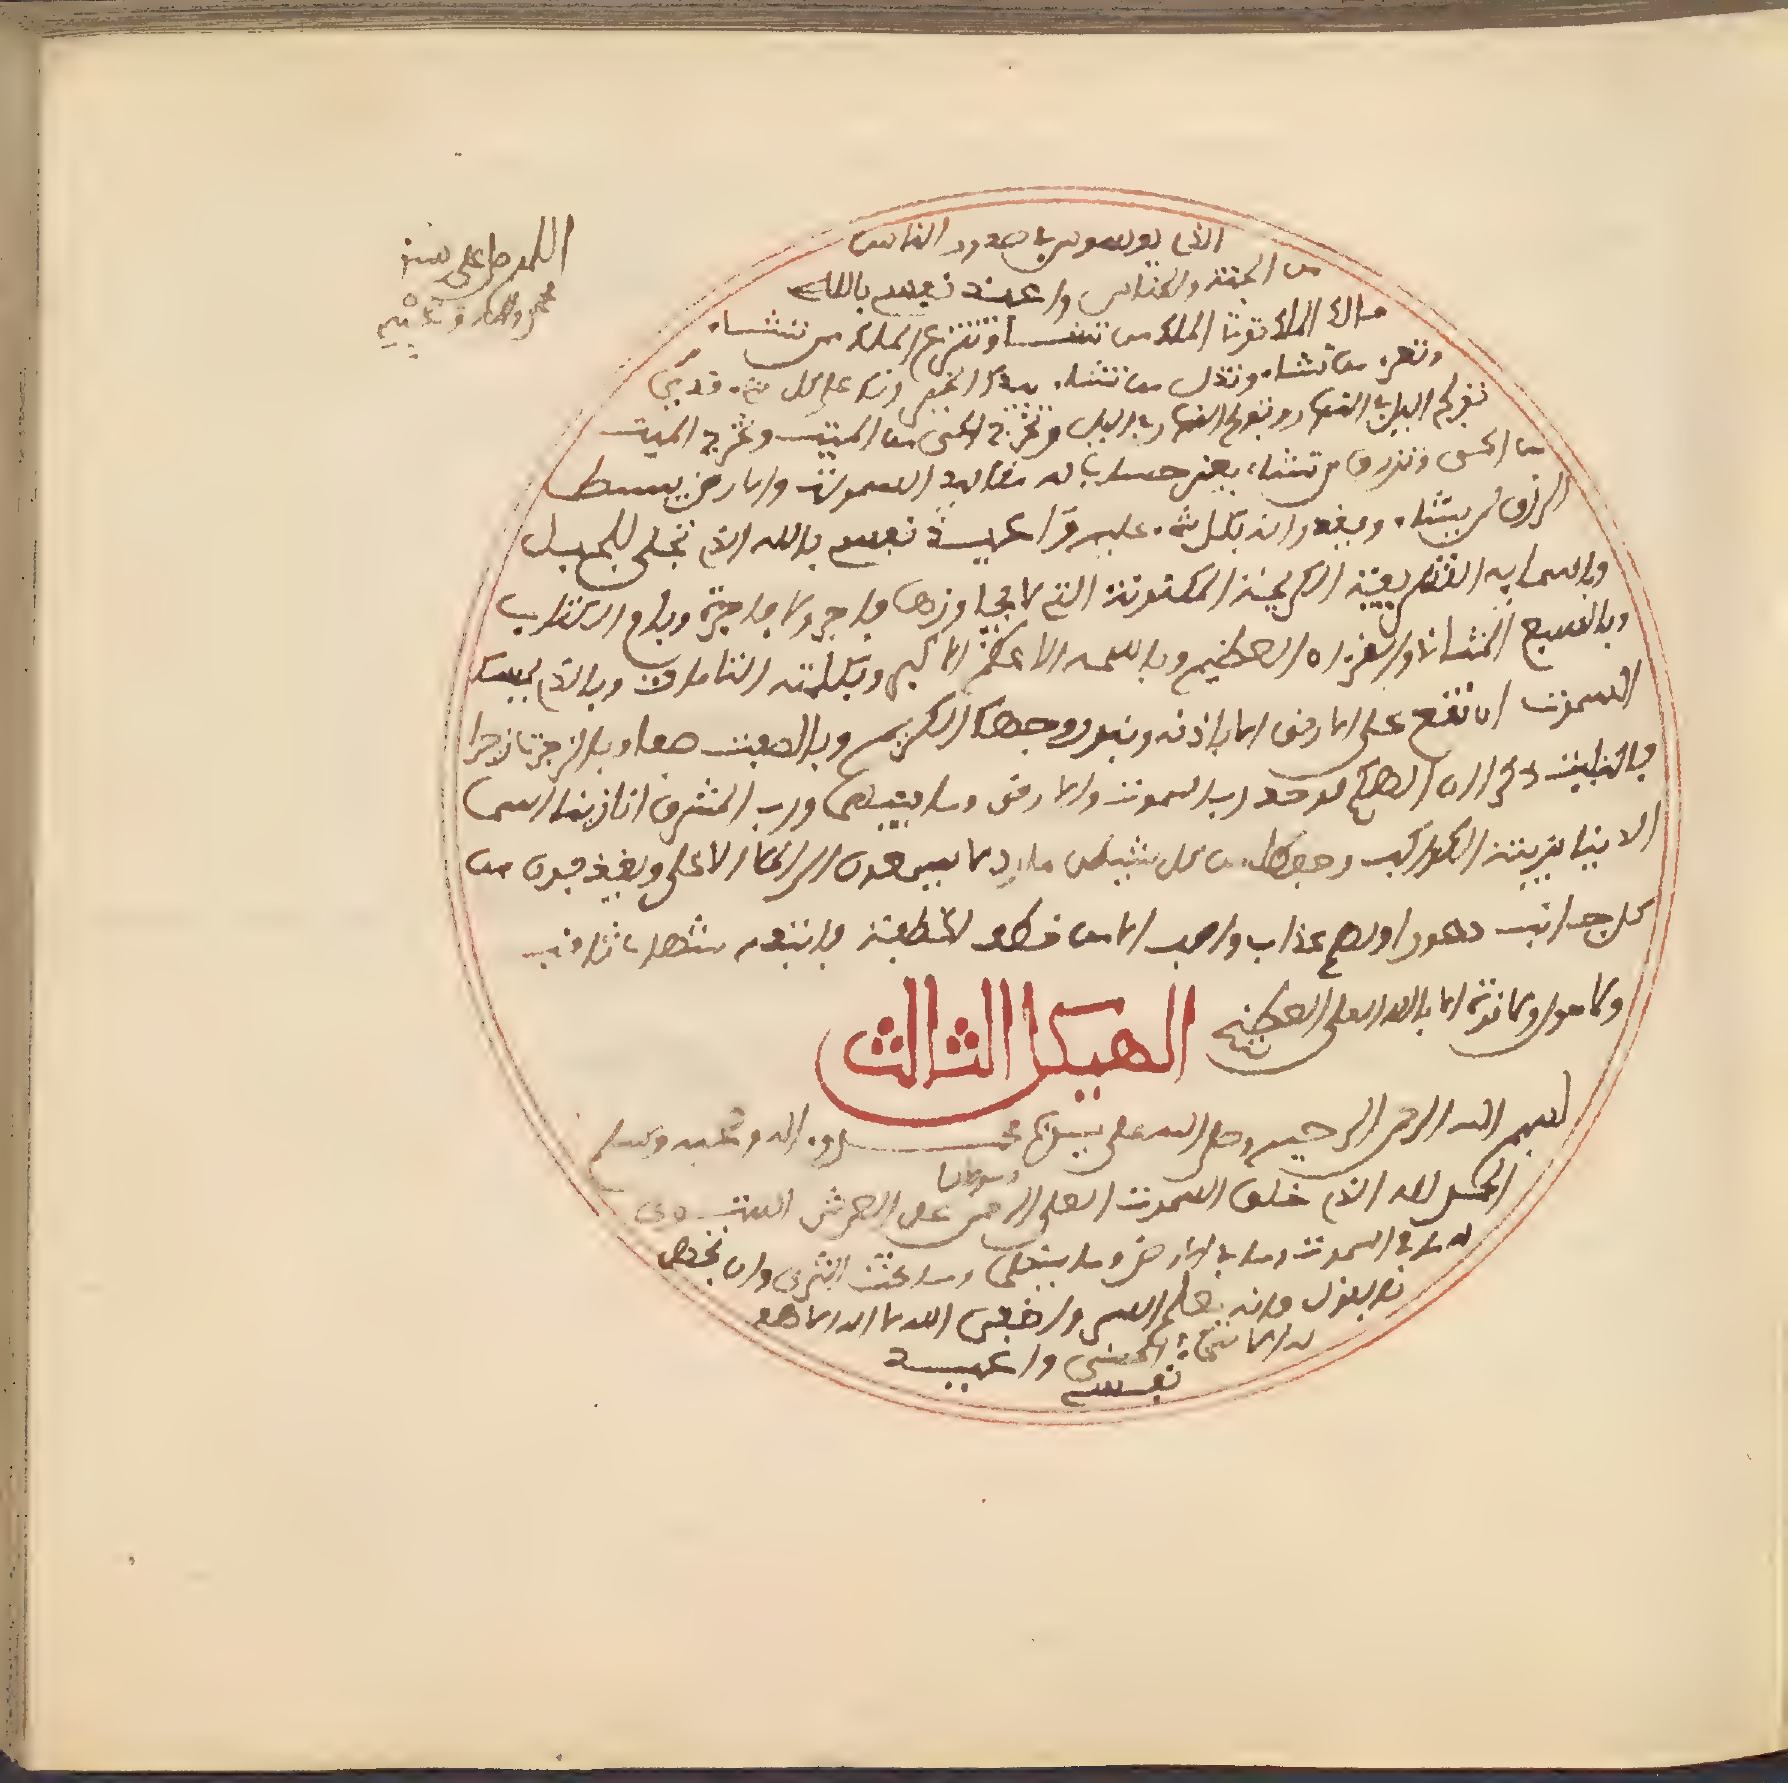 الذي يوسوس في صدور الناس
من الجنة والناس واعيذ نفسي بالله
مالك الملك توتي الملك من تشا وتنزع الملك من تشاء
وتعز من تشاء وتذل من تشاء بيدك الخير انك على كل شيء قدير
تولج اليل في النهار وتولج النهار في اليل وتخرج الحي من الميت وتخرج الميت
من الحي وترزق من تشاء بغير حساب له مقاليد السموت والارض يبسط
الرزق لمن يشاء ويقدر انه بكل شيء عليم واعيذ نفسي بالله الذي تجلى للجبل
وباسمايه الشريفة الكريمة المكنونة التي لا يجاوزها بر ولا فاجر وبام الكتاب
وبالسبع المثاني والقران العظيم وباسمه الاعظم الاكبر وبكلمته التامات وبالذي يمسك
السموت ان تقع على الارض الا باذنه وبنور وجهك الكريم وبالصفت صفا وبالزجرت زجرا
فالتليت ذكرا ان الهكم لوحد رب السموت والارض وما بينهما ورب المشرق انا زينا السما
الدنيا بزينة الكواكب وحفظا من كل شيطن مارد لا يسمعون الى الملا الاعلى ويقذفون من
كل جانب دحورا ولهم عذاب واصب الا من خطف الخطفة فاتبعه شهاب ثاقب
ولا حول ولا قوة الا بالله العلي العظيم
الهيكل الثالث
بسم الله الرحمن الرحيم وصلى الله على سيدنا محمد واله وصحبه وسلم
الحمد لله الذي خلق السموت العلى الرحمن على العرش استوى
له ما في السموت وما في الارض وما بينهما وما تحت الثرى وان تجهر
بالقول فانه يعلم السر واخفى الله لا اله الا هو
له الاسماء الحسنى واعيذ
نفسي
اللهم صل على سيدنا
محمد واله وصحبه